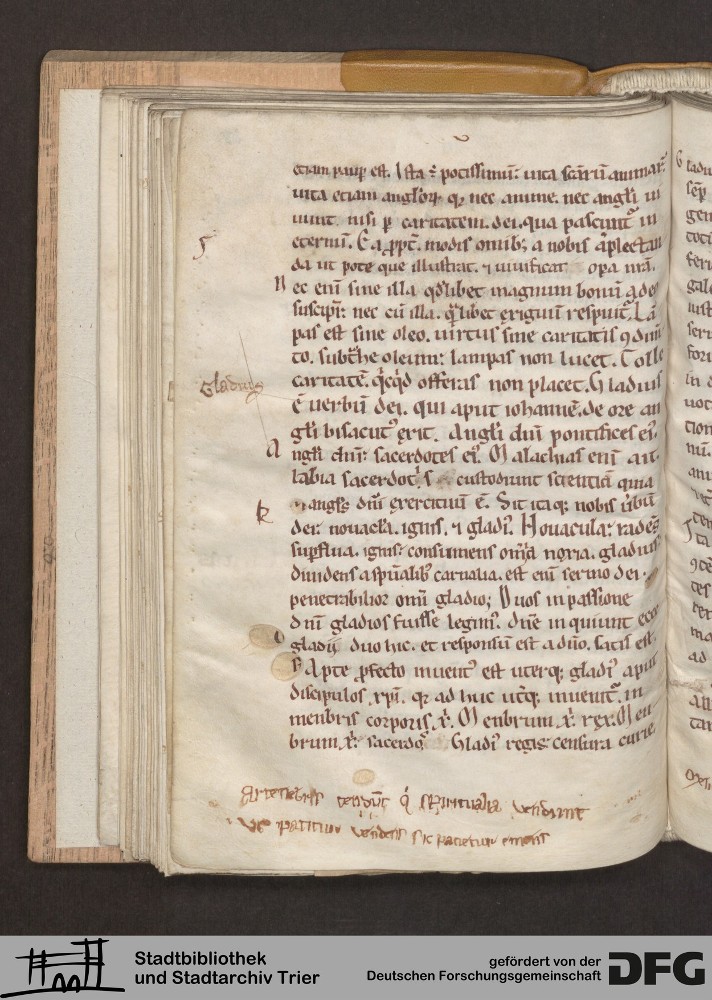 etiam paup est. Ista ē potissimū: uita scārū animarū
uita etiam angłorꝝ. qꝛ nec anime. nec angłi ui
uunt. nisi p caritatem. dei. qua pascunt᷑ in
eternū. Ea ꝓpt̄. modis omib; a nobis āplectan
da ut pote que illustrat. ⁊ uiuificat opa nrā.
N ec enī sine illa qđlibet magnum bonū ade
suscipit᷑: nec cū illa. q̄libet exiguū respuit᷑. Lā
pas est sine oleo. uirtus sine caritatis ꝯdim
to. subtͣhe oleum: lampas non lucet. Tolle
caritatē. qͥcqͥd offeras non placet. Gladius
Gladius
ē uerbū dei. qui aput iohannē. de ore an
głi bisacutꝰ exit. Angłi dn̄i pontifices eiꝰ.
A ngłi dn̄i: sacerdotes eiꝰ. Malachias enī ait.
labia sacerdotis custodiunt scientiā quia
angłs dn̄i exercituū ē. Sit itaq; nobis ūbū
dei: nouacła. ignis. ⁊ gladiꝰ. Nouacula: radēs
supflua. ignis: consumens omīa noxia. gladius:
diuidens a spūalibꝰ carnalia. est enī sermo dei
penetrabilior omī gladio; Duos in passione
dn̄i gladios fuisse legimꝰ. Dn̄e inquiunt ecce
gladij duo hic. et responsū est a dn̄o. satis est.
Apte ꝓfecto inuentꝰ est uterq; gladiꝰ aput
discipulos xp̄i. qꝛ ad huc utͤq; inuenit᷑. in
menbris corporis. x̄. Menbrum. x̄. rex. Men
brum. x̄. sacerdos Gladiꝰ regis censura curie.
tendūt qͥ spiritualia vendunt
vt patitur vendens sic patietur emens
Stadtbibliothek
und Stadtarchiv Trier
gefördert von der
Deutschen Forschungsgemeinschaft
DFG